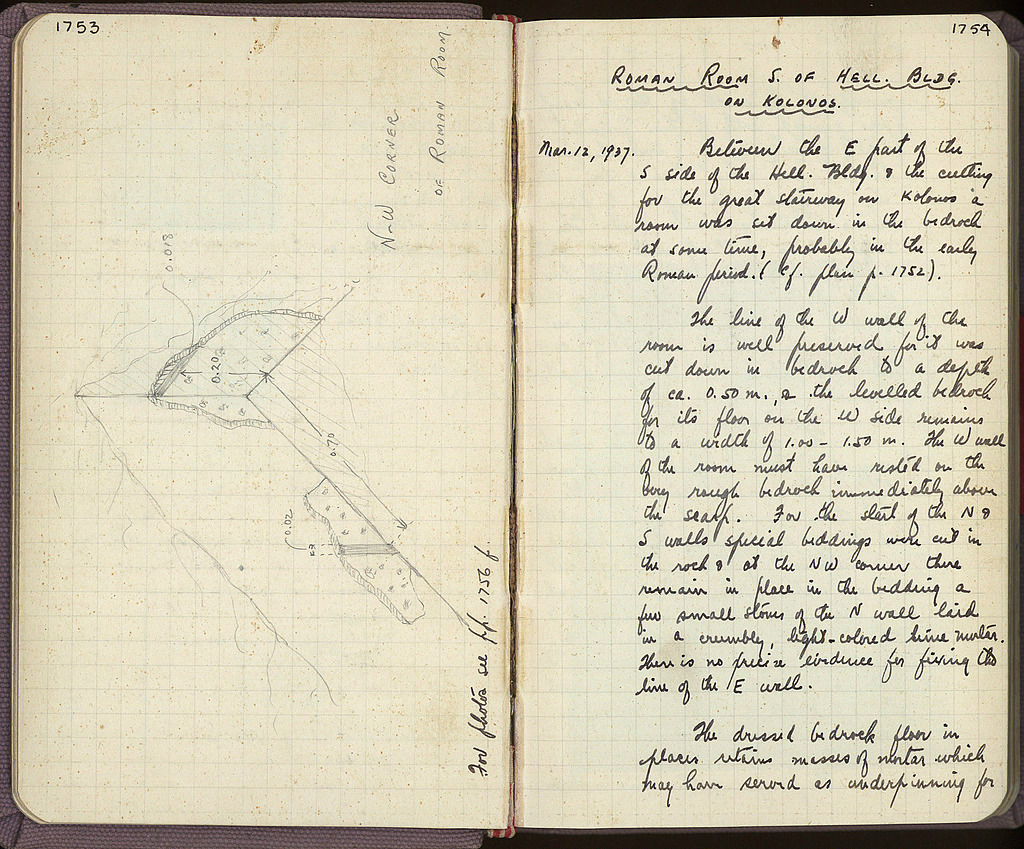 1753
N-W CORNER
OF ROMAN ROOM.
0.018
0.20
0.70
0.02
For photos see pp. 1756 f.
1754
ROMAN ROOM S. OF HELL. BLDG.
ON KOLONOS.
Mar. 12, 1937. Between the E part of the
S side of the Hell. Bldg. & the cutting
for the great stairway on Kolonos a
room was set down in the bedrock
at some time, probably in the early
Roman period. (Cf. plan p. 1752).
The line of the W wall of the
room is well preserved for it was
cut down in bedrock to a depth
of ca. 0.50 m., & the levelled bedrock
for its floor on the W side remains
to a width of 1.00 - 1.50 m. The W wall
of the room must have rested on the
very rough bedrock immediately above
the scarp. For the start of the N &
S walls special beddings were cut in
the rock & at the NW corner there
remain in place in the bedding a
few small stones of the N wall laid
in a crumbly, light-colored lime mortar.
There is no precise evidence for fixing the
line of the E wall.
The dressed bedrock floor in
places retains masses of mortar which
may have served as underpinning for